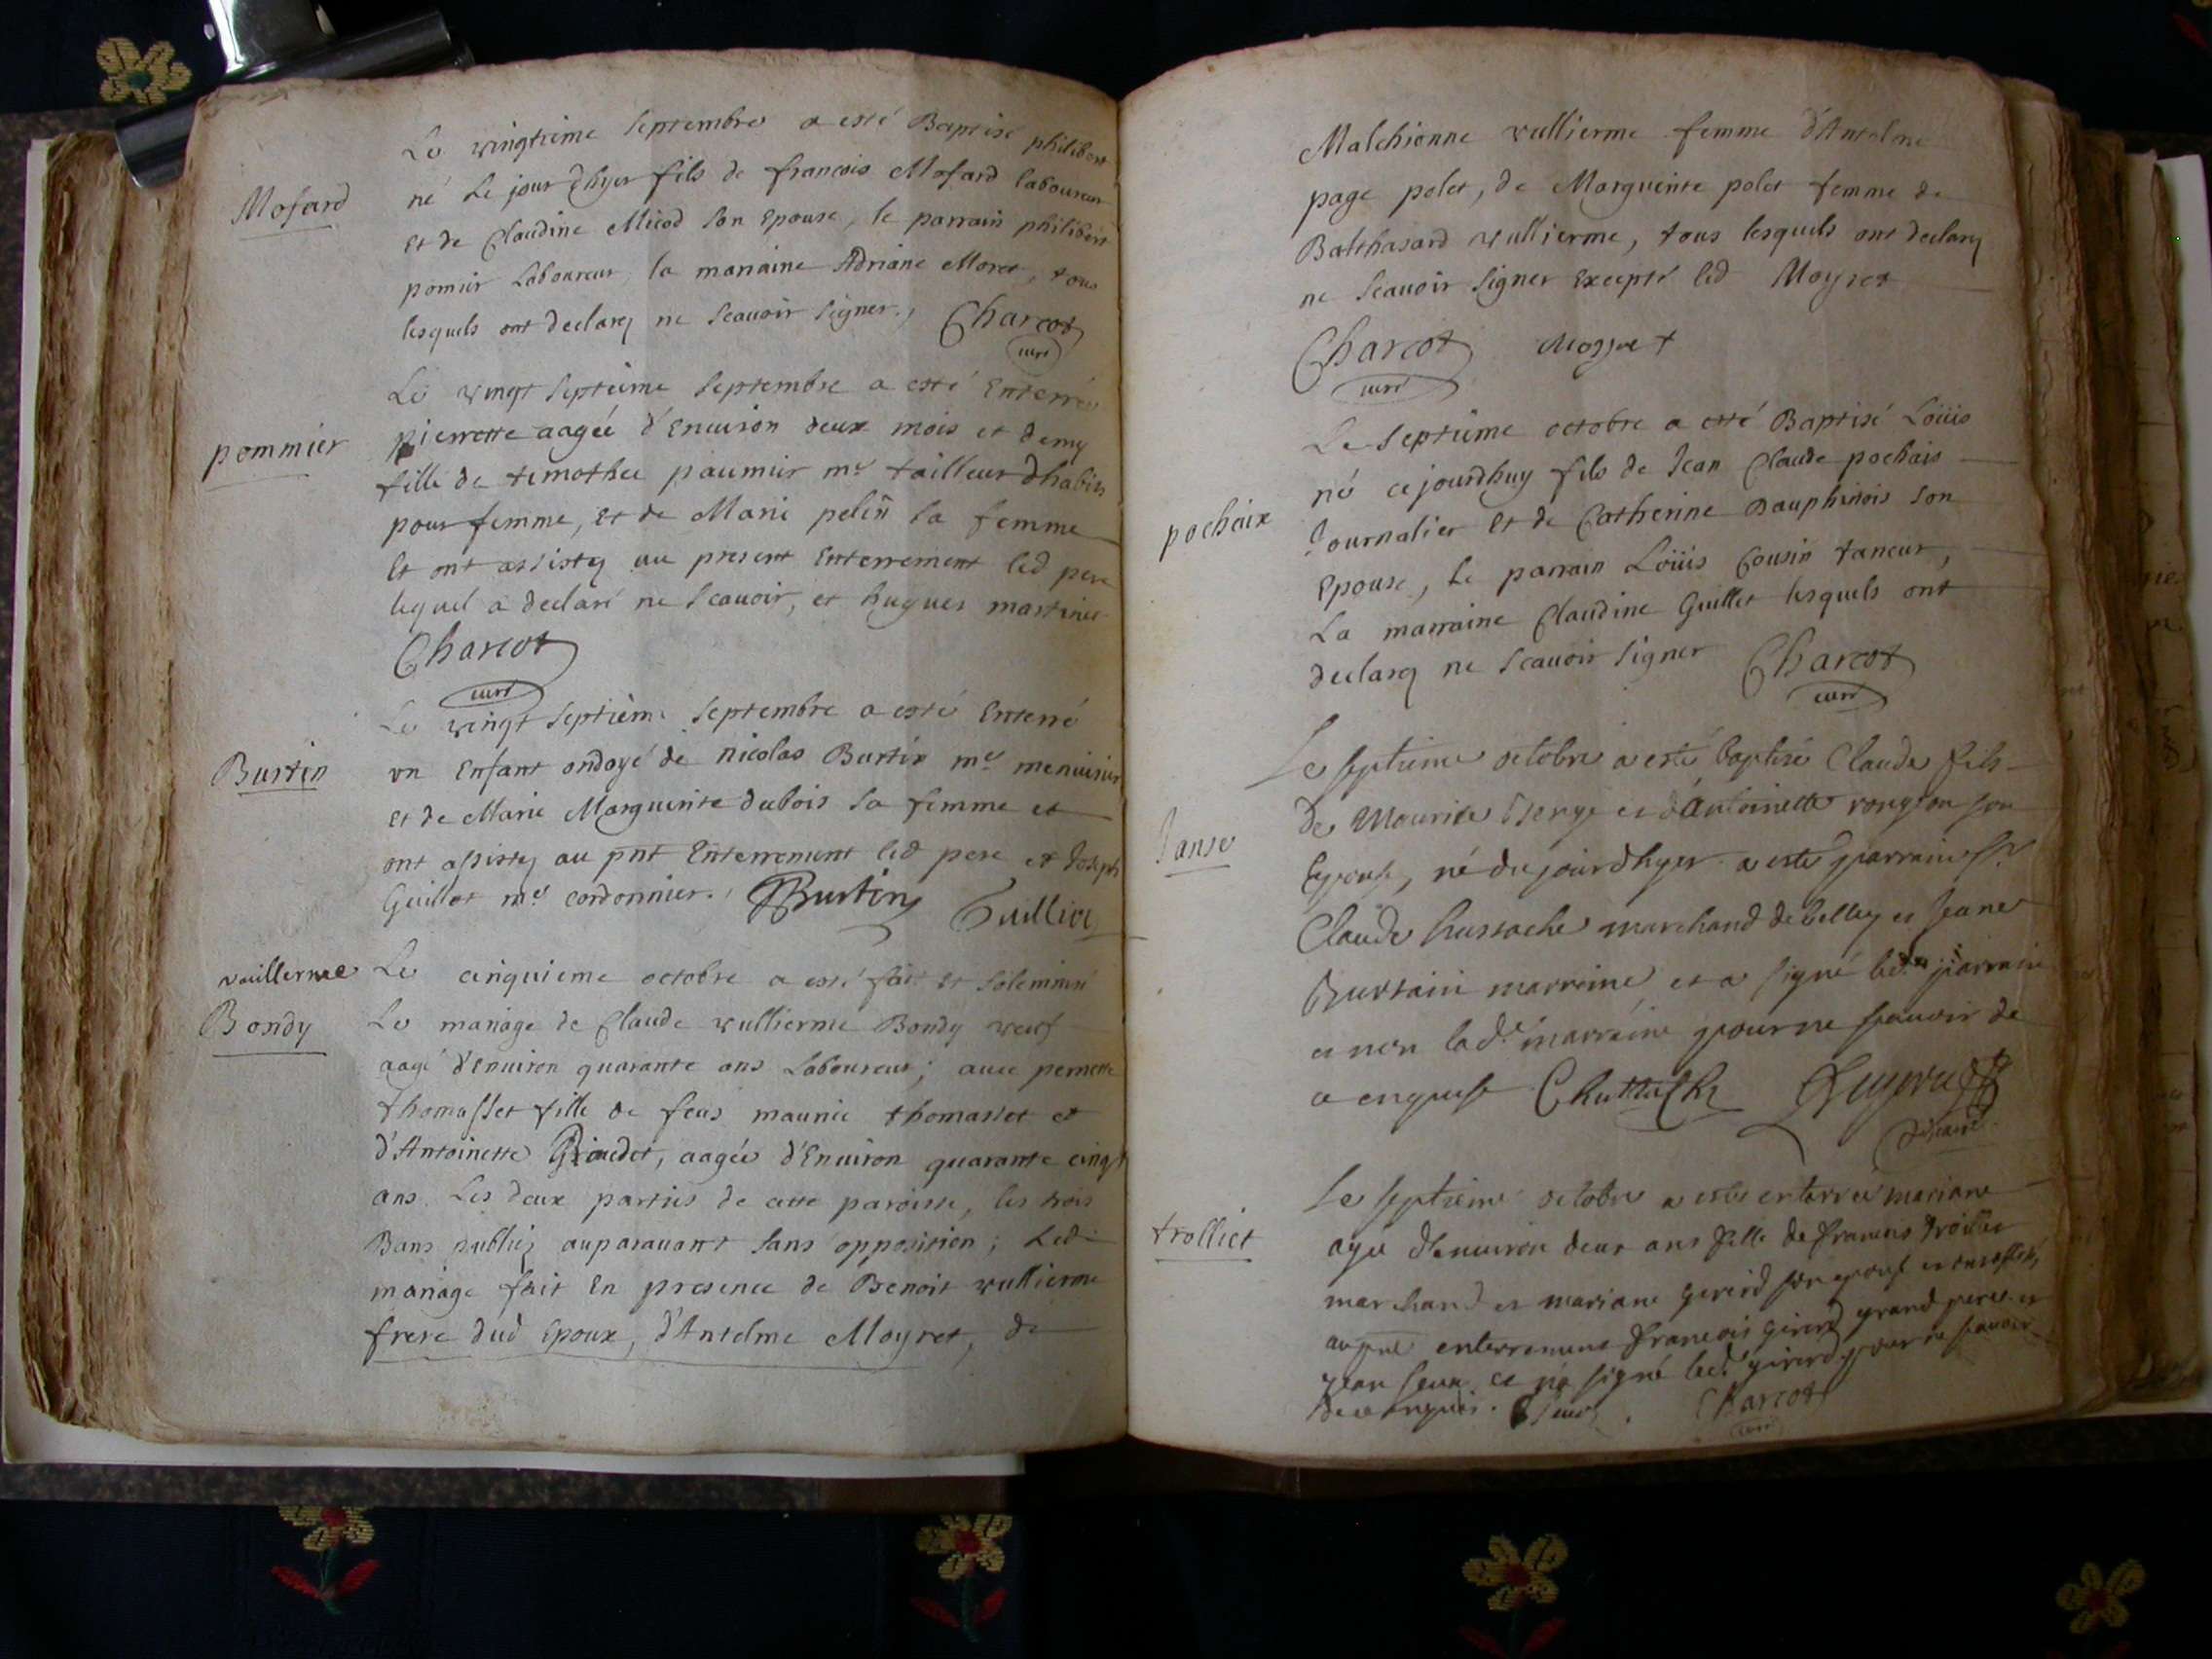 Le vingtieme septembre a esté Baptisé philibert
Mofard
né le jour d'hyer fils de francois Mofard laboureur
et de Claudine Micod son Epouse, le parrain philibert
pomier Laboureur, la marraine Adriane Moret, tous
lesquels ont declarez ne scauoir signer., Charcot
curé
Le vingt septieme septembre a esté Enterrée
pommier
pierrette aagée d'Enuiron deux mois et demy
fille de timothee paumier me tailleur d'habits
pour femme, et de Marie sa femme
et ont assistez au present Enterrement led pere
lequel a declaré ne scauoir, et hugues martinet
Charcot
curé
Le vingt septieme septembre a esté Enterré
Burtin
vn Enfant ondoyé de nicolas Burtin me menuisier
et de Marie Marguerite dubois sa femme et
ont assistez au pnt Enterrement led pere et Joseph
Guillot me cordonnier. Burtin Guilliot
vuillerme
Bondy
Le cinquieme octobre a esté fait et solemnisé
Le mariage de Claude vullierme Bondy veuf
aagé d'Enuiron quarante ans Laboureur; auec pernette
thomasset fille de feus maurice thomasset et
d'Antoinette, aagée d'Enuiron quarante cinq
ans. Les deux parties de cette paroisse, les trois
Bans publiez auparauant sans opposition; Led
mariage fait En presence de Benoit vullierme
frere dud Epoux, d'Antelme Moyret, de
Malchionne vullierme femme d'Antelme
page polet, de Marguerite polet femme de
Balthasard vullierme, tous lesquels ont declarez
ne scauoir signer Excepté led Moyret
Charcot Moyret
curé
Le septieme octobre a esté Baptisé Loüis
pochaix
né cejourdhuy fils de Jean Claude pochais
Journalier et de Catherine Dauphinois son
Epouse, Le parrain Loüis Cousin taneur,
La marraine Claudine Guillet lesquels ont
declarez ne scauoir signer Charcot
curé
Le septieme octobre a esté baptisé Claude fils
Janse
de Mourice et d'Antoinette son
Epouse, né du jour d'hyer a esté parrain sr
Claude marchand de belley et Jeane
Burtain marreine et a signé led parrain
et non lade marraine pour ne sçauoir de
ce enquise
vicaire
Le septieme octobre a esté enterrée mariane
trolliet
agée d'enuiron deux ans fille de francois trolliet
marchand et mariane girerd son epouse
au pnt enterrement francois girerd grand pere et
et n'a signé led girerd pour ne scauoir
de ce enquis. Charcot
curé